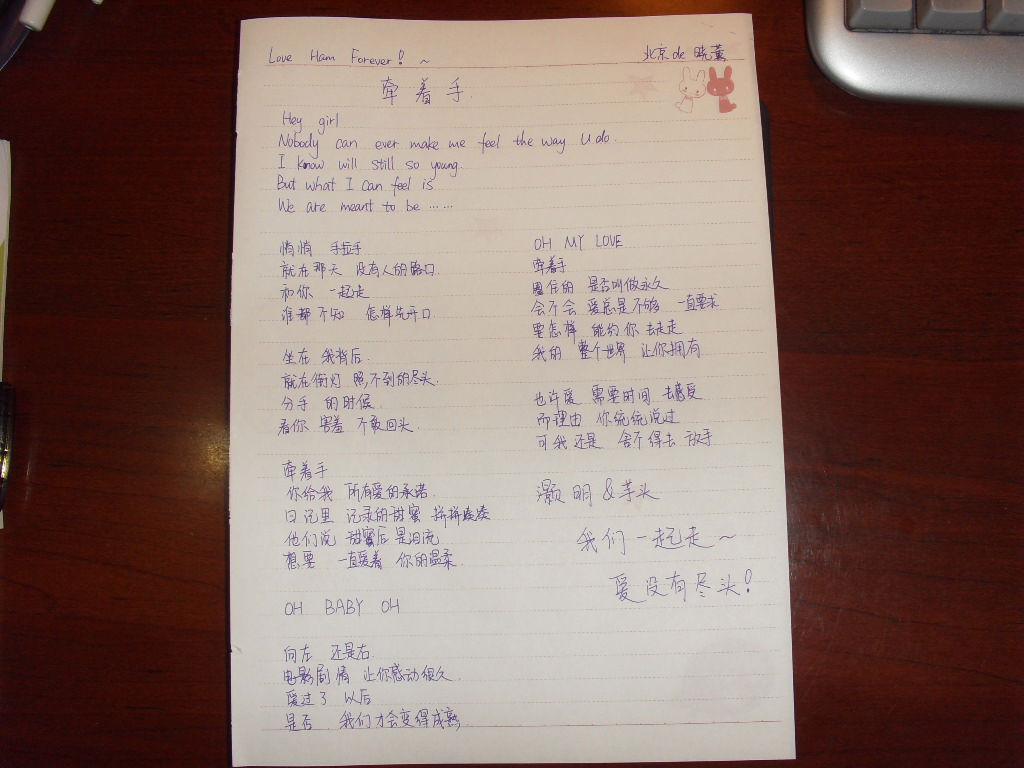 Love Ham Forever! ~
北京 de 晓薰
牵着手
Hey girl
Nobody can ever make me feel the way u do.
I know will still so young.
But what I can feel is
We are meant to be ……
悄悄 手拉手
就在那天 没有人的路口
和你 一起走
谁都不知 怎样先开口
坐在 我背后
就在街灯 照不到的尽头
分手 的时候
看你 害羞 不敢回头
牵着手
你给我 所有爱的承诺
日记里 记录的甜蜜 拼拼凑凑
他们说 甜蜜后是泪流
想要 一直爱着 你的温柔
OH BABY OH
向左 还是右
电影剧情 让你感动很久
爱过了 以后
是否 我们才会变得成熟
OH MY LOVE
牵着手
相信的 是否叫做永久
会不会 爱总是不够 一直要求
要怎样 能约你去走走
我的 整个世界 让你拥有
也许爱 需要时间 去感受
而理由 你统统说过
可我还是 舍不得去 放手
灏明&芋头
我们一起走~
爱没有尽头!